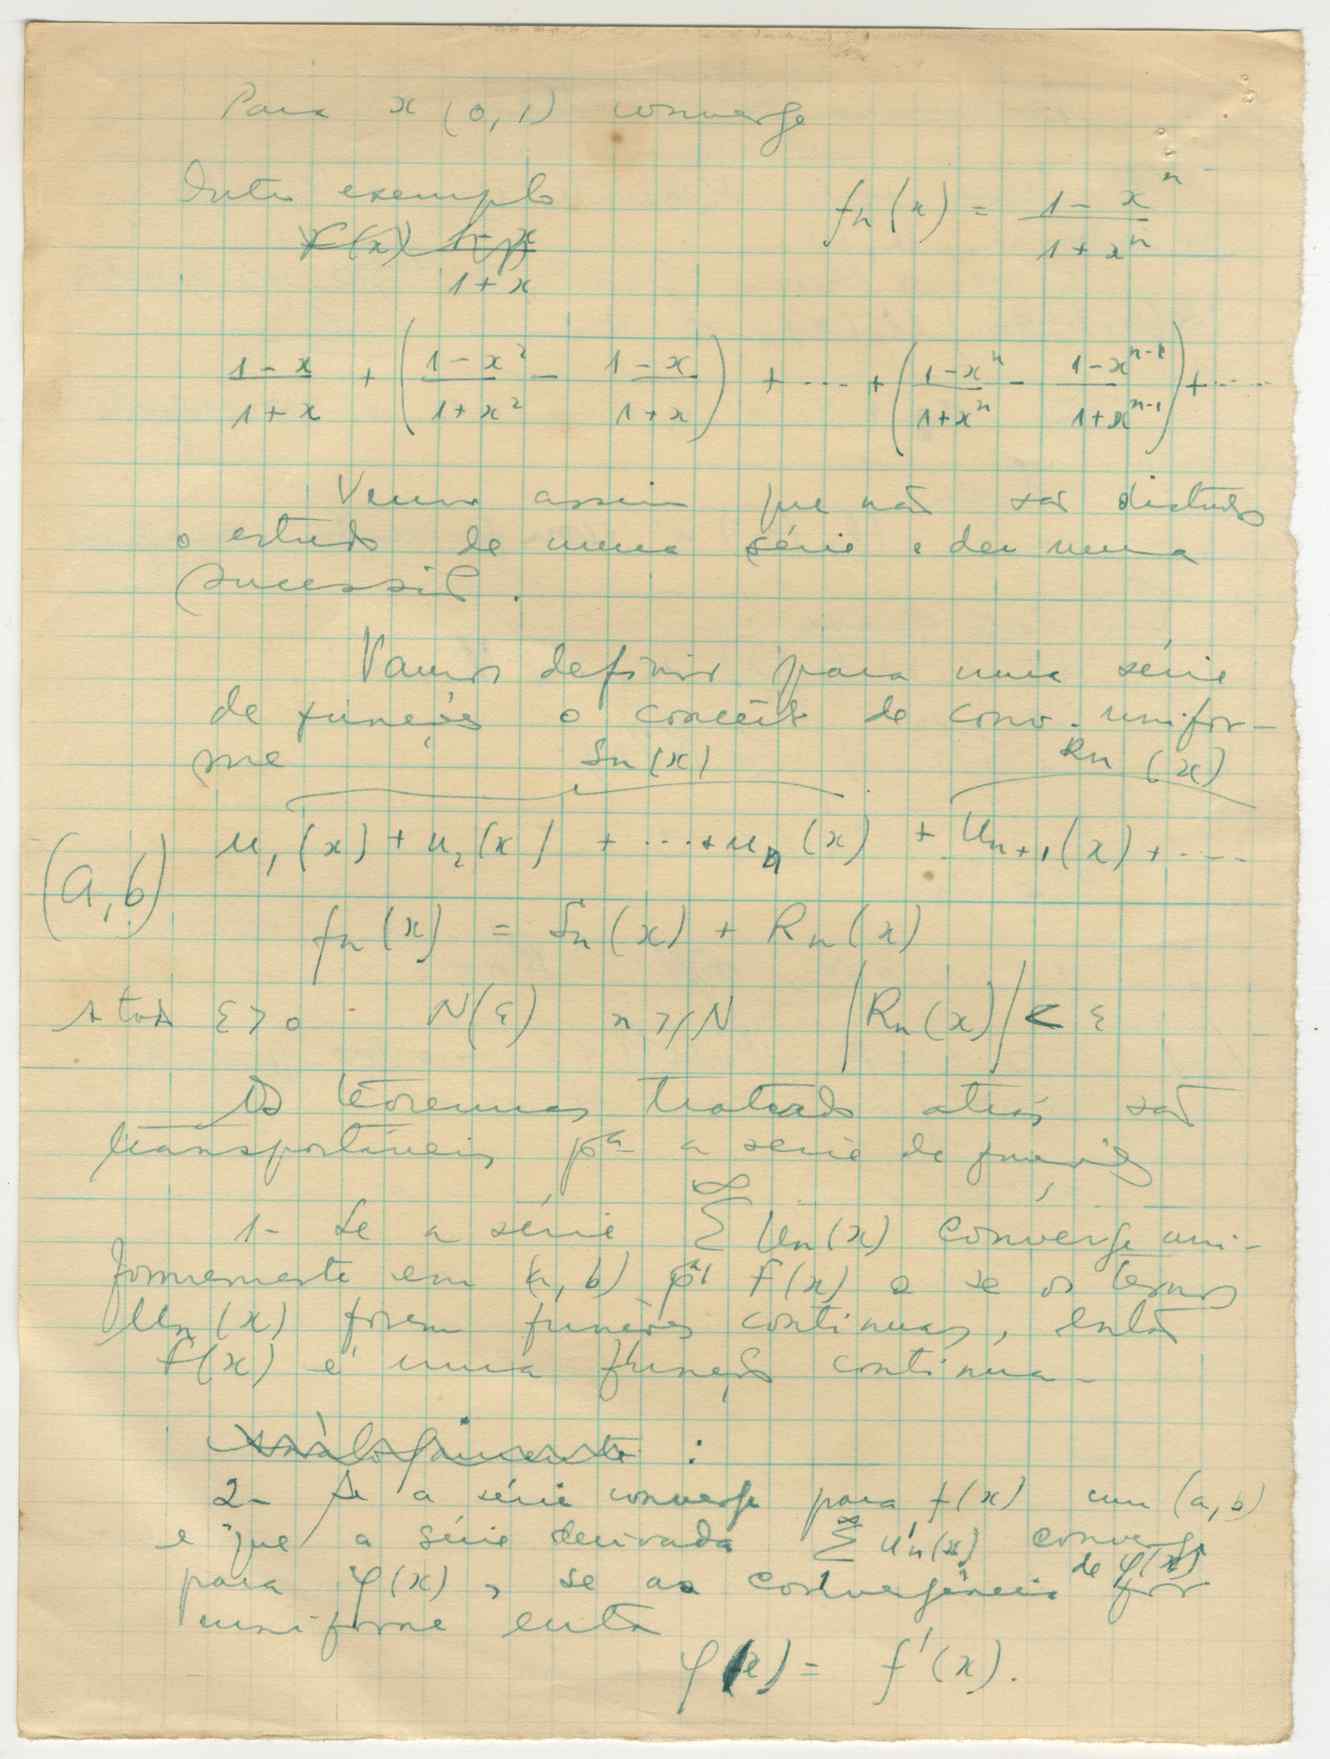 Para x (0,1) converge
Outro exemplo fn(x) = (1 - x^n)/(1 + x^n)
f(x) (1 - x)/(1 + x)
(1 - x)/(1 + x) + ((1 - x²)/(1 + x²) - (1 - x)/(1 + x)) + ... + ((1 - x^n)/(1 + x^n) - (1 - x^{n-1})/(1 + x^{n-1})) + ....
Vemos assim que não são distintos
o estudo de uma série e de uma
sucessão.
Vamos definir para uma série
de funções o conceito de conv. unifor-
me Sn(x) Rn(x)
u₁(x) + u₂(x) + ... + un(x) + un+1(x) + ....
(a,b)
fn(x) = Sn(x) + Rn(x)
A todo ε > 0 N(ε) n ≥ N |Rn(x)| < ε
Os teoremas tratados atrás são
transportáveis pª a serie de funções
1- Se a série ∑^∞ Un(x) converge uni-
formemente em (a,b) pª f(x) e se os termos
Un(x) forem funções continuas, então
f(x) é uma função contínua-
Analogamente :
2- Se a série converge para f(x) em (a,b)
e que a série derivada ∑^∞ u'n(x) converge
para φ(x), se a convergência de φ(x) for
uniforme então
φ(x) = f'(x).